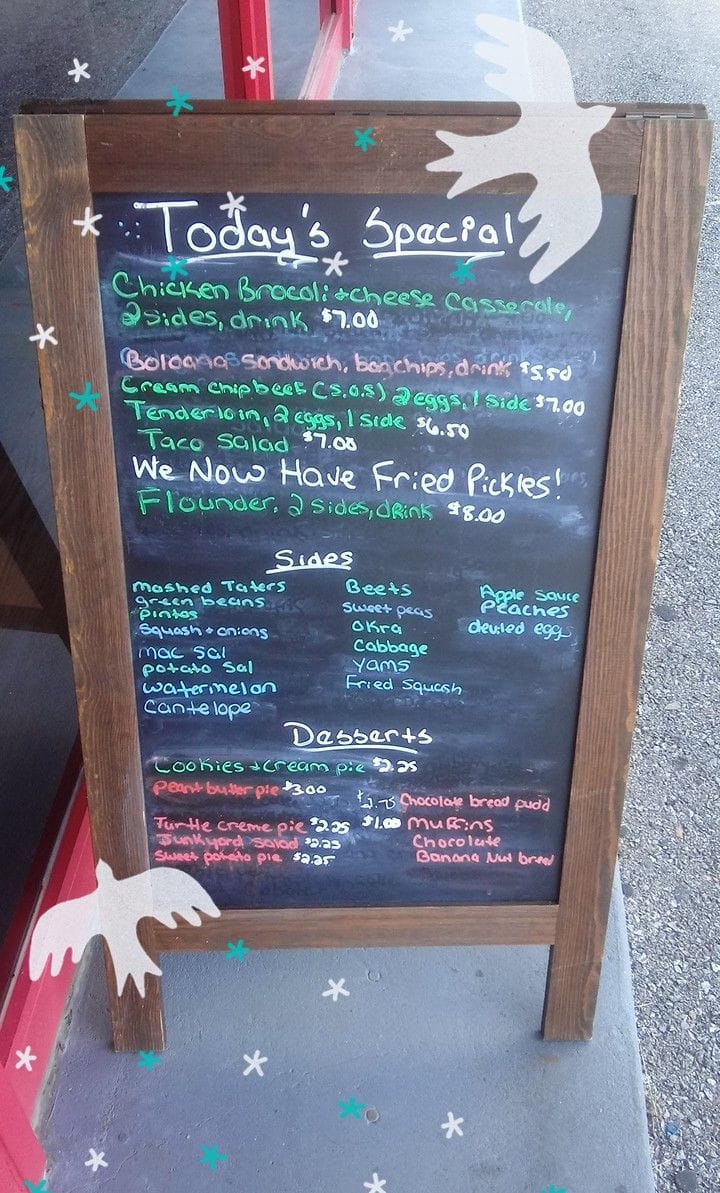 Today's Special
Chicken Brocoli + cheese casserole,
2 sides, drink $7.00
Bologna Sandwich, bag chips, drink $5.50
Cream chip beef (S.O.S) 2 eggs, 1 side $7.00
Tenderloin, 2 eggs, 1 side $6.50
Taco Salad $7.00
We Now Have Fried Pickles!
Flounder, 2 sides, drink $8.00
Sides
mashed Taters
green beans
pintos
Squash + onions
mac sal
potato sal
watermelon
Cantelope
Beets
sweet peas
okra
Cabbage
yams
Fried Squash
Apple sauce
Peaches
deviled eggs
Desserts
Cookies + cream pie $2.25
Peanut butter pie $3.00
Turtle creme pie $2.25
Junkyard salad $2.25
Sweet potato pie $2.25
Chocolate bread pudd
$1.00 Muffins
Chocolate
Banana Nut bread